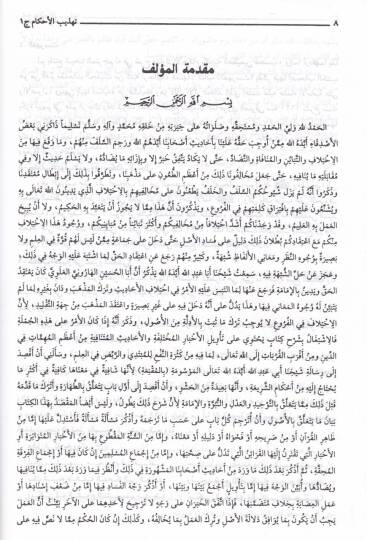 ٨ تهذيب الأحكام ج١
مقدمة المؤلف
بسم الله الرحمن الرحيم
الحمدُ لله وَليِّ الحَمدِ ومُستَحِقِّهِ وصَلَوَاتُهُ عَلى خِيَرَتِهِ مِن خَلقِهِ مُحَمَّدٍ وَآلِهِ وسَلَّمَ تَسليماً ذَاكَرَني بَعضُ
الأصدِقَاءِ أيَّدَهُ الله مِمَّن أوجَبَ حَقَّهُ عَلَيْنَا بأحَاديثِ أصحَابنا أيَّدَهُمُ الله ورَحِمَ السَّلَفَ مِنْهُم، وما وَقَعَ فيهَا مِنَ
الاختِلافِ والتَّبَايُنِ والمُنَافَاةِ والتَّضَادِّ، حَتَّى لا يَكَادُ يَتَّفِقُ خَبَرٌ إلّا وبإزَائِهِ مَا يُضَادُّهُ، ولا يَسلَمُ حَديثٌ إلّا وفي
مُقَابَلَتِهِ مَا يُنَافيهِ، حَتَّى جَعَلَ مُخَالِفُونَا ذَلِكَ مِن أعظَمِ الطُّعُونِ عَلى مَذهَبِنَا، وتَطَرَّقُوا بذَلِكَ إلى إبطَالِ مُعتَقَدِنَا
وذَكَرُوا أنَّهُ لَم يَزَل شُيُوخُكُمُ السَّلَفُ والخَلَفُ يَطعُنُونَ عَلى مُخَالِفيهِم بالاختِلافِ الَّذي يَدينُونَ الله تَعالى بهِ
ويُشَنِّعُونَ عَلَيْهِم بافتِرَاقِ كَلِمَتِهِم في الفُرُوعِ، ويَذكُرُونَ أنَّ هَذَا مِمَّا لا يَجُوزُ أن يَتَعَبَّدَ بهِ الحَكيمُ، ولا أن يُبيحَ
العَمَلَ بهِ العَليمُ، وقَد وَجَدنَاكُم أشَدَّ اختِلافاً مِن مُخَالِفيكُم وأكثَرَ تَبَايُناً مِن مُبَاينيكُم، ووُجُودُ هَذَا الاختِلافِ
مِنكُم مَعَ اعتِقَادِكُم بُطلانَ ذَلِكَ دَليلٌ عَلى فَسَادِ الأصلِ حَتَّى دَخَلَ عَلى جَمَاعَةٍ مِمَّن لَيسَ لَهُم قُوَّةٌ في العِلمِ ولا
بَصيرَةٌ بوُجُوهِ النَّظَرِ ومَعَاني الألفَاظِ شُبهَةٌ، وكَثيرٌ مِنهُم رَجَعَ عَنِ اعتِقَادِ الحَقِّ لِمَا اشتَبَهَ عَلَيهِ الوَجهُ في ذَلِكَ،
وعَجَزَ عَن حَلِّ الشُّبهَةِ فيهِ، سَمِعتُ شَيخَنَا أبَا عَبدِ الله أيَّدَهُ الله يَذكُرُ أنَّ أبَا الحُسَينِ الهَارُونيَّ العَلَويَّ كَانَ يَعتَقِدُ
الحَقَّ ويَدينُ بالإمَامَةِ فَرَجَعَ عَنهَا لَمَّا التَبَسَ عَلَيهِ الأمرُ في اختِلافِ الأحَاديثِ وتَرَكَ المَذهَبَ ودَانَ بغَيرِهِ لَمَّا لَم
يَتَبَيَّن لَهُ وُجُوهُ المَعَاني فيهَا وهَذَا يَدُلُّ عَلى أنَّهُ دَخَلَ فيهِ عَلى غَيرِ بَصيرَةٍ واعتَقَدَ المَذهَبَ مِن جِهَةِ التَّقليدِ، لأنَّ
الاختِلافَ في الفُرُوعِ لا يُوجِبُ تَركَ مَا ثَبَتَ بالأدِلَّةِ مِنَ الأصُولِ، وذَكَرَ أنَّهُ إذَا كَانَ الأمرُ عَلى هَذِهِ الجُملَةِ
فَالاشتِغَالُ بشَرحِ كِتَابٍ يَحتَوي عَلى تَأويلِ الأخبَارِ المُختَلِفَةِ والأحَاديثِ المُتَنَافيَةِ مِن أعظَمِ المُهِمَّاتِ في
الدِّينِ ومِن أقرَبِ القُرُبَاتِ إلى الله تَعَالى، لِمَا فيهِ مِن كَثرَةِ النَّفعِ للمُبتَدي والرَّيِّضِ في العِلمِ، وسَألَني أن أقصِدَ
إلى رِسَالَةِ شَيخِنَا أبي عَبدِ الله أيَّدَهُ الله تَعَالى المَوسُومَةِ (بالمُقنِعَةِ) لأنَّهَا شَافيَةٌ في مَعنَاهَا كَافيَةٌ في أكثَرِ مَا
يُحتَاجُ إلَيهِ مِن أحكَامِ الشَّريعَةِ، وأنَّهَا بَعيدَةٌ مِنَ الحَشوِ، وأن أقصِدَ إلى أوَّلِ بَابٍ يَتَعَلَّقُ بالطَّهَارَةِ وأترُكَ مَا قَدَّمَهُ
قَبلَ ذَلِكَ مِمَّا يَتَعَلَّقُ بالتَّوحيدِ والعَدلِ والنُّبُوَّةِ والإمَامَةِ لأنَّ شَرحَ ذَلِكَ يَطُولُ، ولَيسَ أيضاً المَقصَدُ بهَذَا الكِتَابِ
بَيَانَ مَا يَتَعَلَّقُ بالأصُولِ وأن أُتَرجِمَ كُلَّ بَابٍ عَلى حَسَبِ مَا تَرجَمَهُ وأذكُرَ مَسألَةً مَسألَةً فَأستَدِلَّ عَلَيهَا إمَّا مِن
ظَاهِرِ القُرآنِ أو مِن صَريحِهِ أو فَحوَاهُ أو دَليلِهِ أو مَعنَاهُ، وإمَّا مِنَ السُّنَّةِ المَقطُوعِ بهَا مِنَ الأخبَارِ المُتَوَاتِرَةِ أو
الأخبَارِ الَّتي تَقتَرِنُ إلَيهَا القَرَائِنُ الَّتي تَدُلُّ عَلى صِحَّتِهَا، وإمَّا مِن إجمَاعِ المُسلِمينَ إن كَانَ فيهَا أو إجمَاعِ الفِرقَةِ
المُحِقَّةِ، ثُمَّ أذكُرَ بَعدَ ذَلِكَ مَا وَرَدَ مِن أحَاديثِ أصحَابنَا المَشهُورَةِ في ذَلِكَ وأنظُرَ فيمَا وَرَدَ بَعدَ ذَلِكَ مِمَّا يُنَافيهَا
ويُضَادُّهَا وأُبَيِّنَ الوَجهَ فيهَا إمَّا بتَأويلٍ أجمَعُ بَينَهَا وبَينَهَا، أو أذكُرَ وَجهَ الفَسَادِ فيهَا إمَّا مِن ضَعفِ إسنَادِهَا أو
عَمَلِ العِصَابَةِ بخِلافِ مُتَضَمَّنِهَا، فَإذَا اتَّفَقَ الخَبَرَانِ عَلى وَجهٍ لا تَرجيحَ لأحَدِهِمَا عَلى الآخَرِ بَيَّنتُ أنَّ العَمَلَ
يَجِبُ أن يَكُونَ بمَا يُوَافِقُ دَلالَةَ الأصلِ وتَركِ العَمَلِ بمَا يُخَالِفُهُ، وكَذَلِكَ إن كَانَ الحُكمُ مِمَّا لا نَصَّ فيهِ عَلى